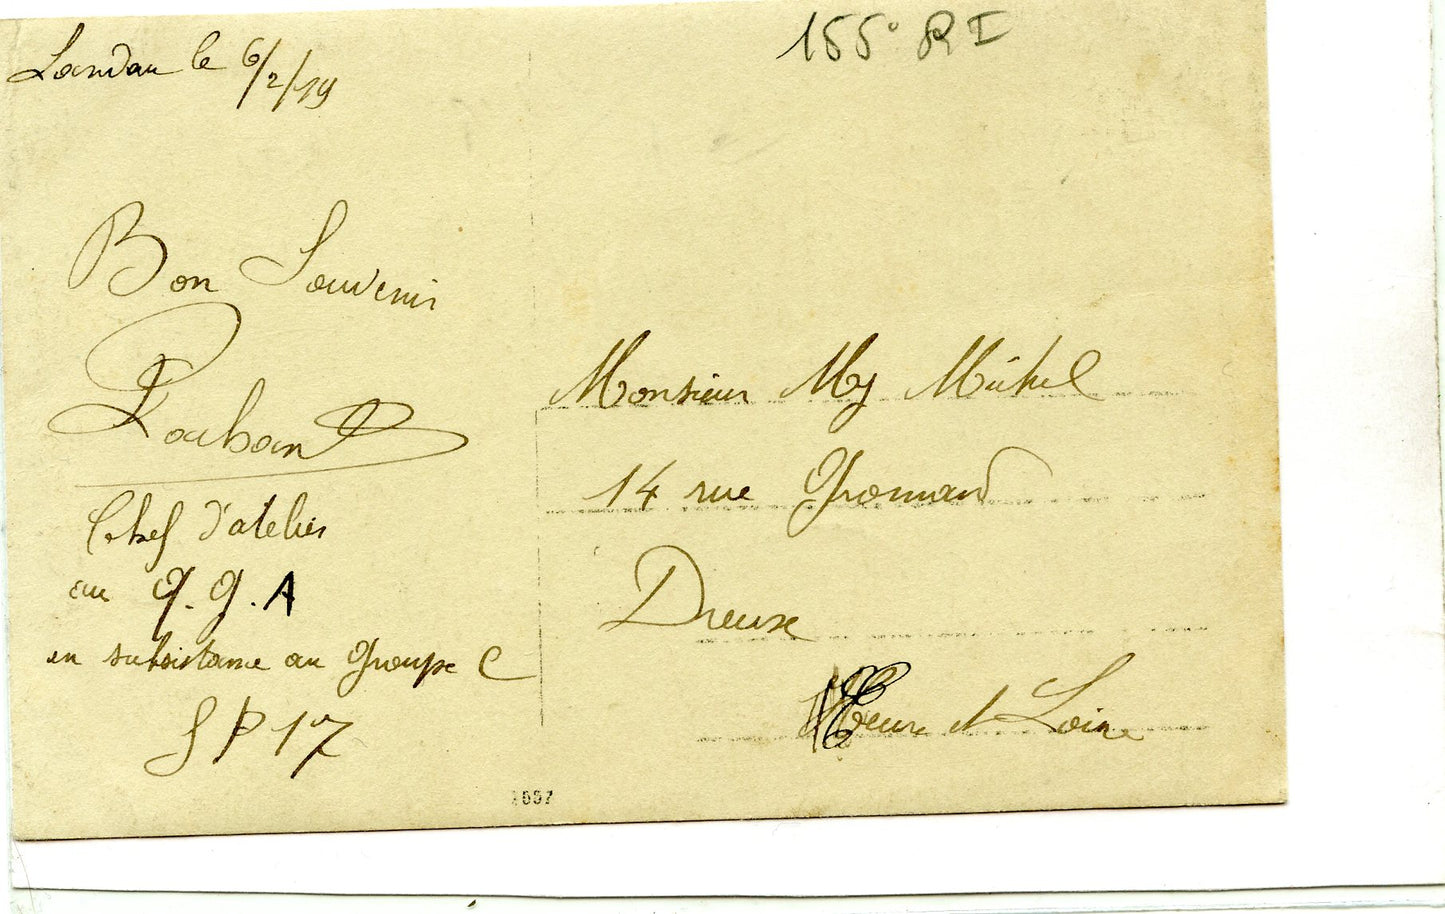 155° RI
Landau le 6/2/19
Bon Souvenir
Chef d'atelier
au G.G.A
en subsistance au Groupe C
SP 17
Monsieur My Michel
14 rue Gromard
Dreux
Eure et Loire